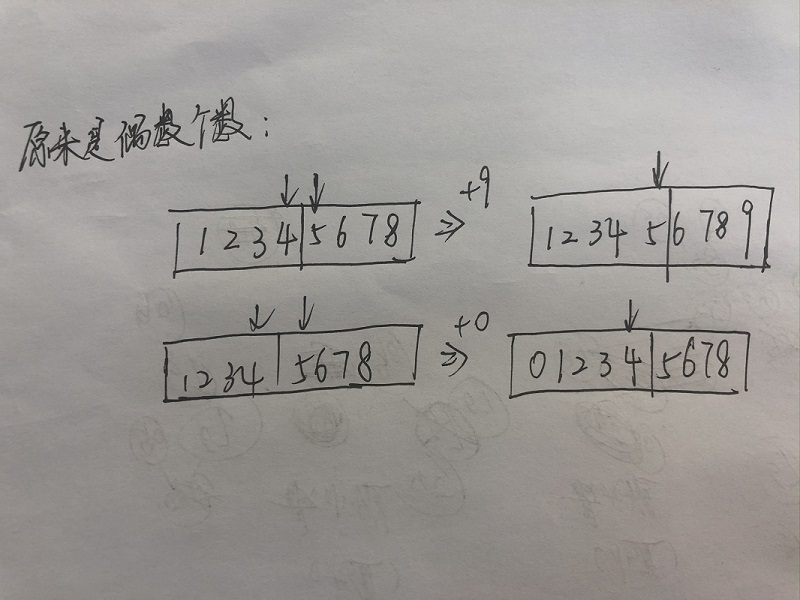 原来是偶数个数:
↓ ↓ ↓
1 2 3 4 | 5 6 7 8 ⇒ +9 1 2 3 4 5 | 6 7 8 9
↓ ↓ ↓
1 2 3 4 | 5 6 7 8 ⇒ +0 0 1 2 3 4 | 5 6 7 8